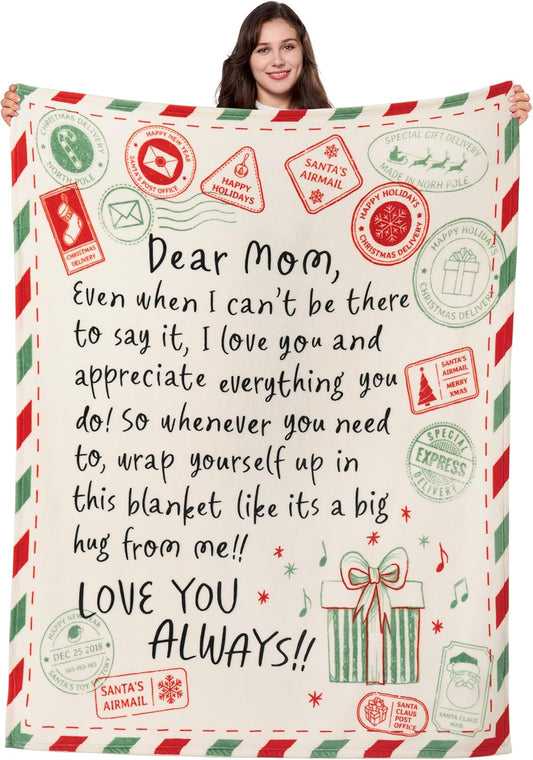 CHRISTMAS DELIVERY
NORTH POLE
HAPPY NEW YEAR
SANTA'S POST OFFICE
HAPPY HOLIDAYS
SANTA'S
AIRMAIL
SPECIAL GIFT DELIVERY
MADE IN NORH POLE
CHRISTMAS
DELIVERY
HAPPY HOLIDAYS
CHRISTMAS DELIVERY
HAPPY HOLIDAYS
CHRISTMAS DELIVERY
Dear Mom,
Even when I can't be there
to say it, I love you and
appreciate everything you
do! So whenever you need
to, wrap yourself up in
this blanket like its a big
hug from me!!
LOVE YOU
ALWAYS!!
SANTA'S
AIRMAIL
MERRY
XMAS
SPECIAL
EXPRESS
DELIVERY
HAPPY NEW YEAR
DEC 25 2018
HO-HO-HO
SANTA'S TOY FACTORY
SANTA'S
AIRMAIL
SANTA
CLAUS
POST
OFFICE
SANTA CLAUS
MAIL